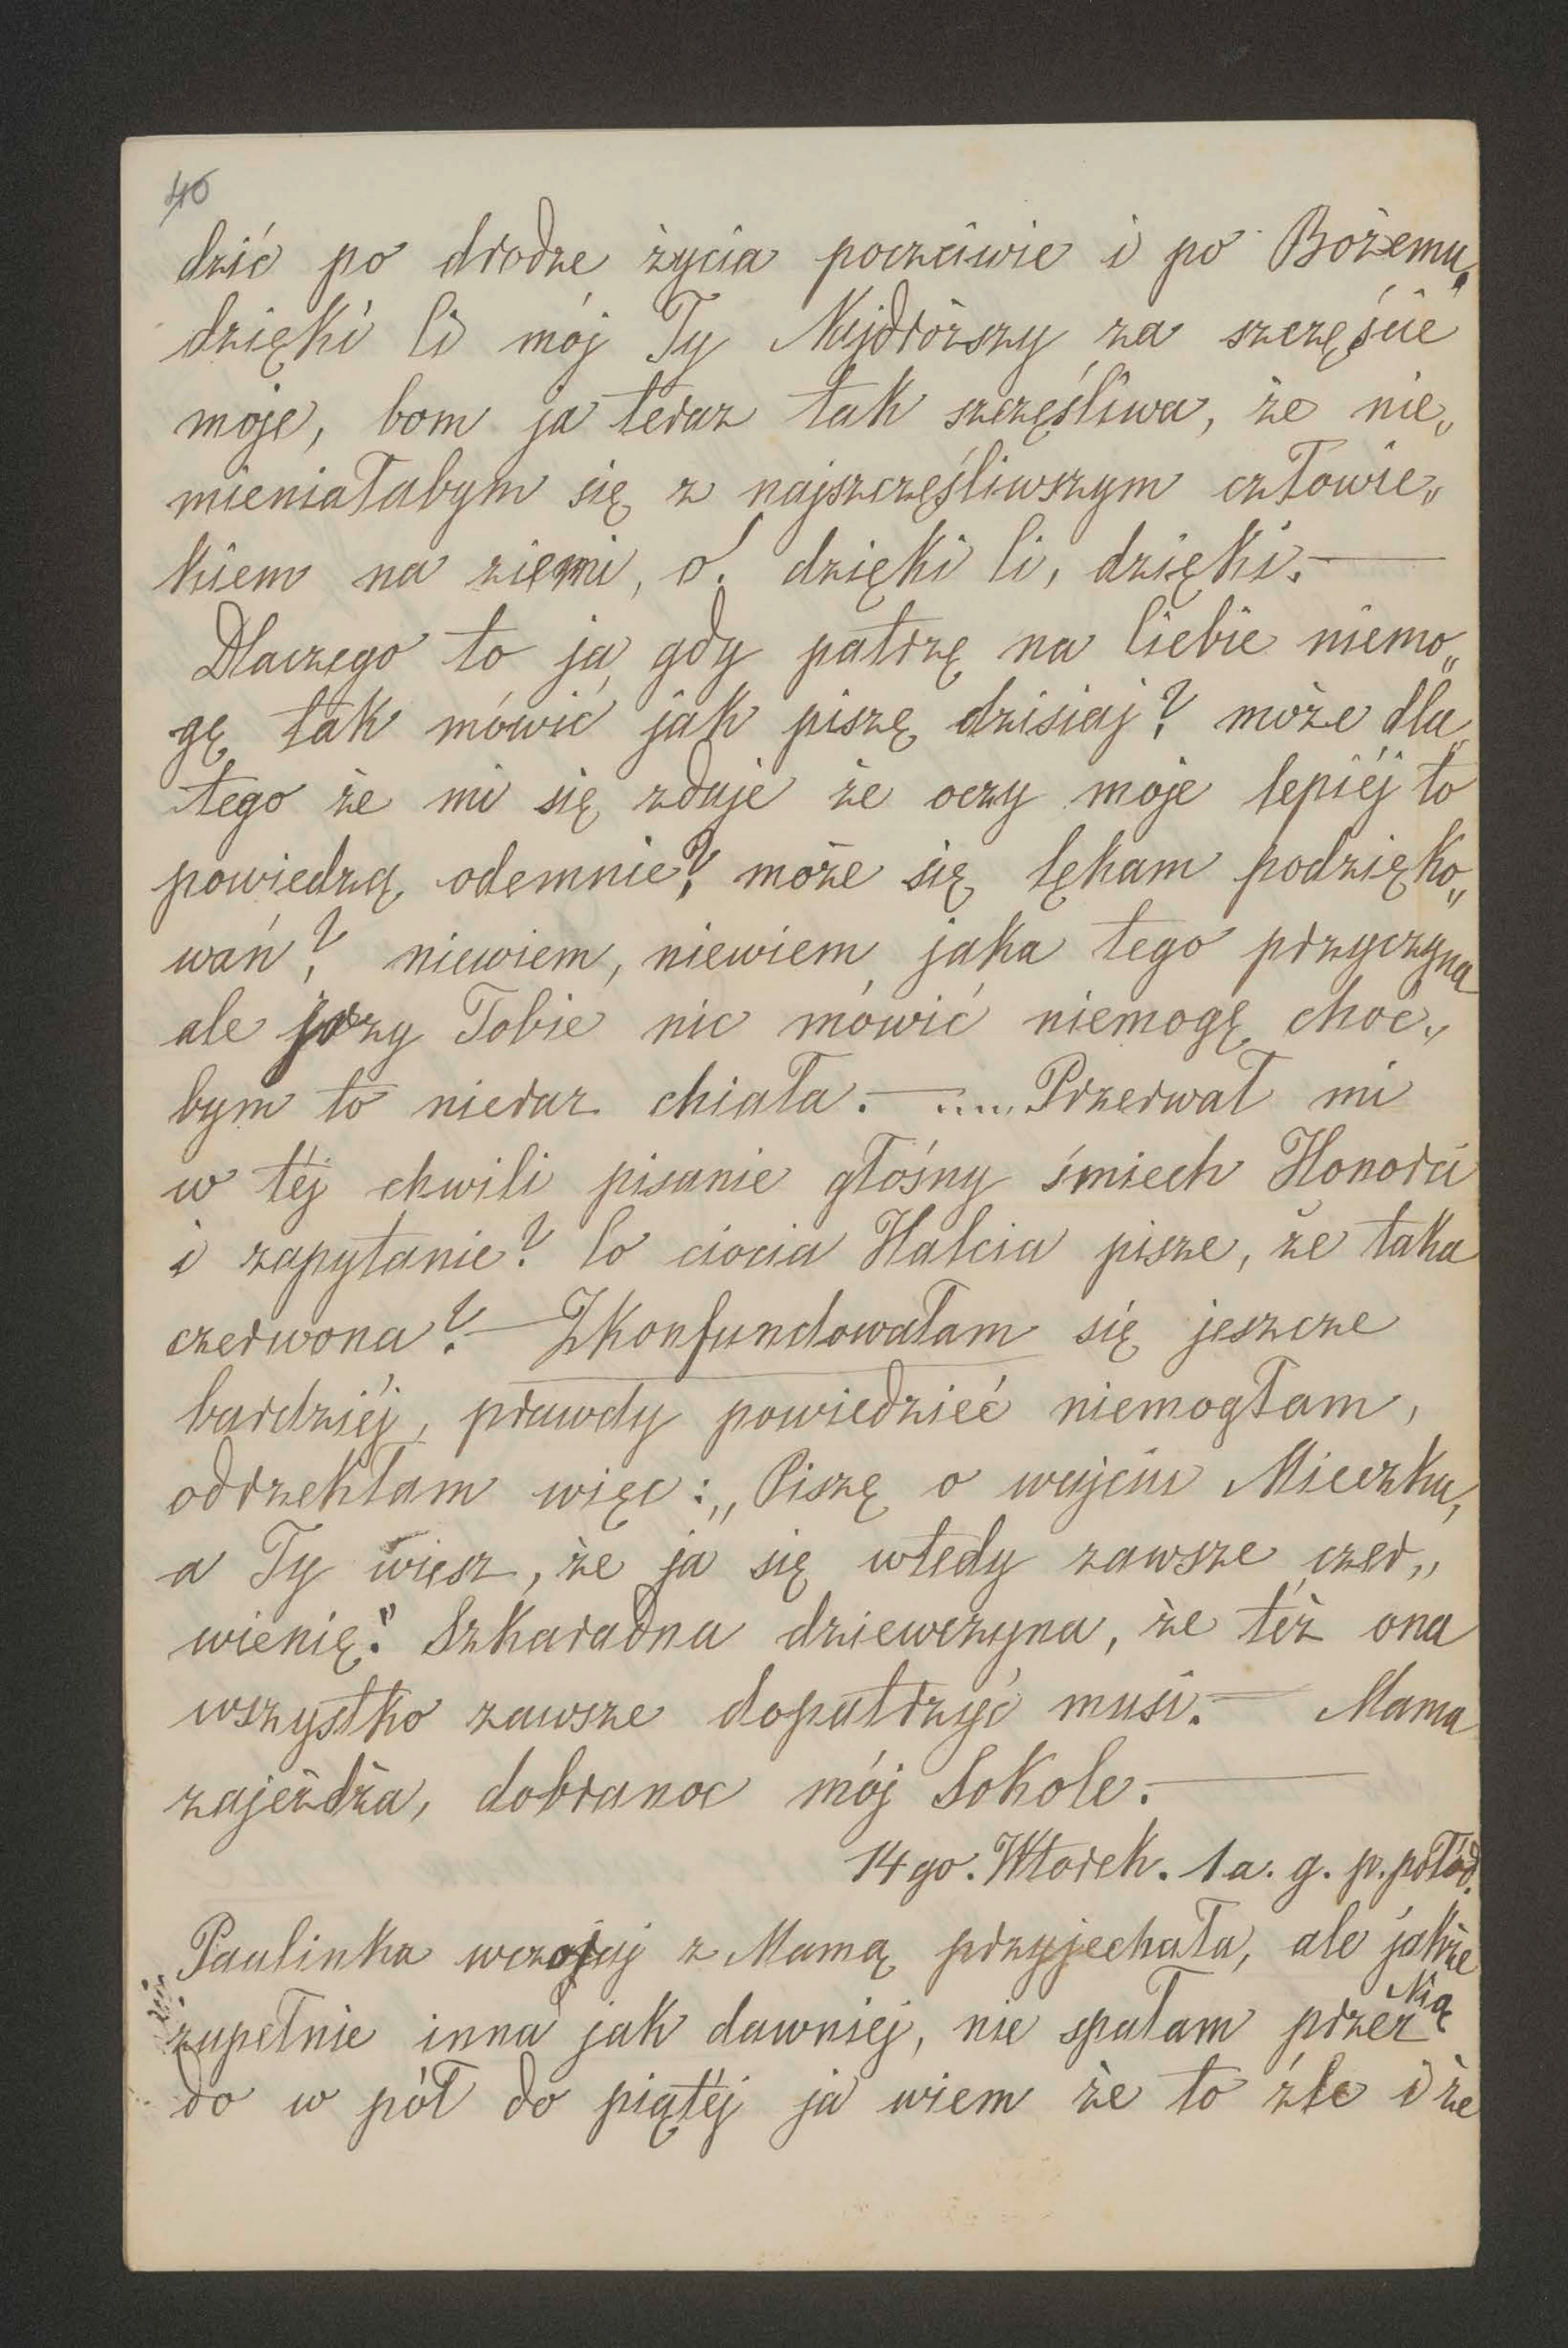 40
dzić po drodze życia poczciwie i po Bożemu,
dzięki Ci mój Ty Najdroższy za szczęście
moje, bom ja teraz tak szczęśliwa, że nie„
mieniałabym się z najszczęśliwszym człowie„
kiem na ziemi, o! dzięki Ci, dzięki. —
Dlaczego to ja, gdy patrzę na Ciebie niemo„
gę tak mówić jak piszę dzisiaj? może dla„
tego że mi się zdaje że oczy moje lepiéj to
powiedzą odemnie? może się lękam podzięko„
wań? niewiem, niewiem jaka tego przyczyna
ale przy Tobie nic mówić niemogę choć„
bym to nieraz chiała. — ..... Przerwał mi
w téj chwili pisanie głośny śmiech Honorci
i zapytanie? Co ciocia Halcia pisze, że taka
czerwona? — Zkonfundowałam się jeszcze
bardziéj, prawdy powiedzieć niemogłam,
odrzekłam więc: „Piszę o wujciu Mieczku,
a Ty wiesz, że ja się wtedy zawsze czer„
wienię." Szkaradna dziewczyna, że téż ona
wszystko zawsze dopatrzyć musi. — Mama
zajeżdża, dobranoc mój Sokole. —
14go. Wtorek. 1a. g. p. połód.
Paulinka wczoraj z Mamą przyjechała, ale jakże
zupełnie inna jak dawniej, nie spałam przez Nią
do w pół do piątéj ja wiem że to źle i że